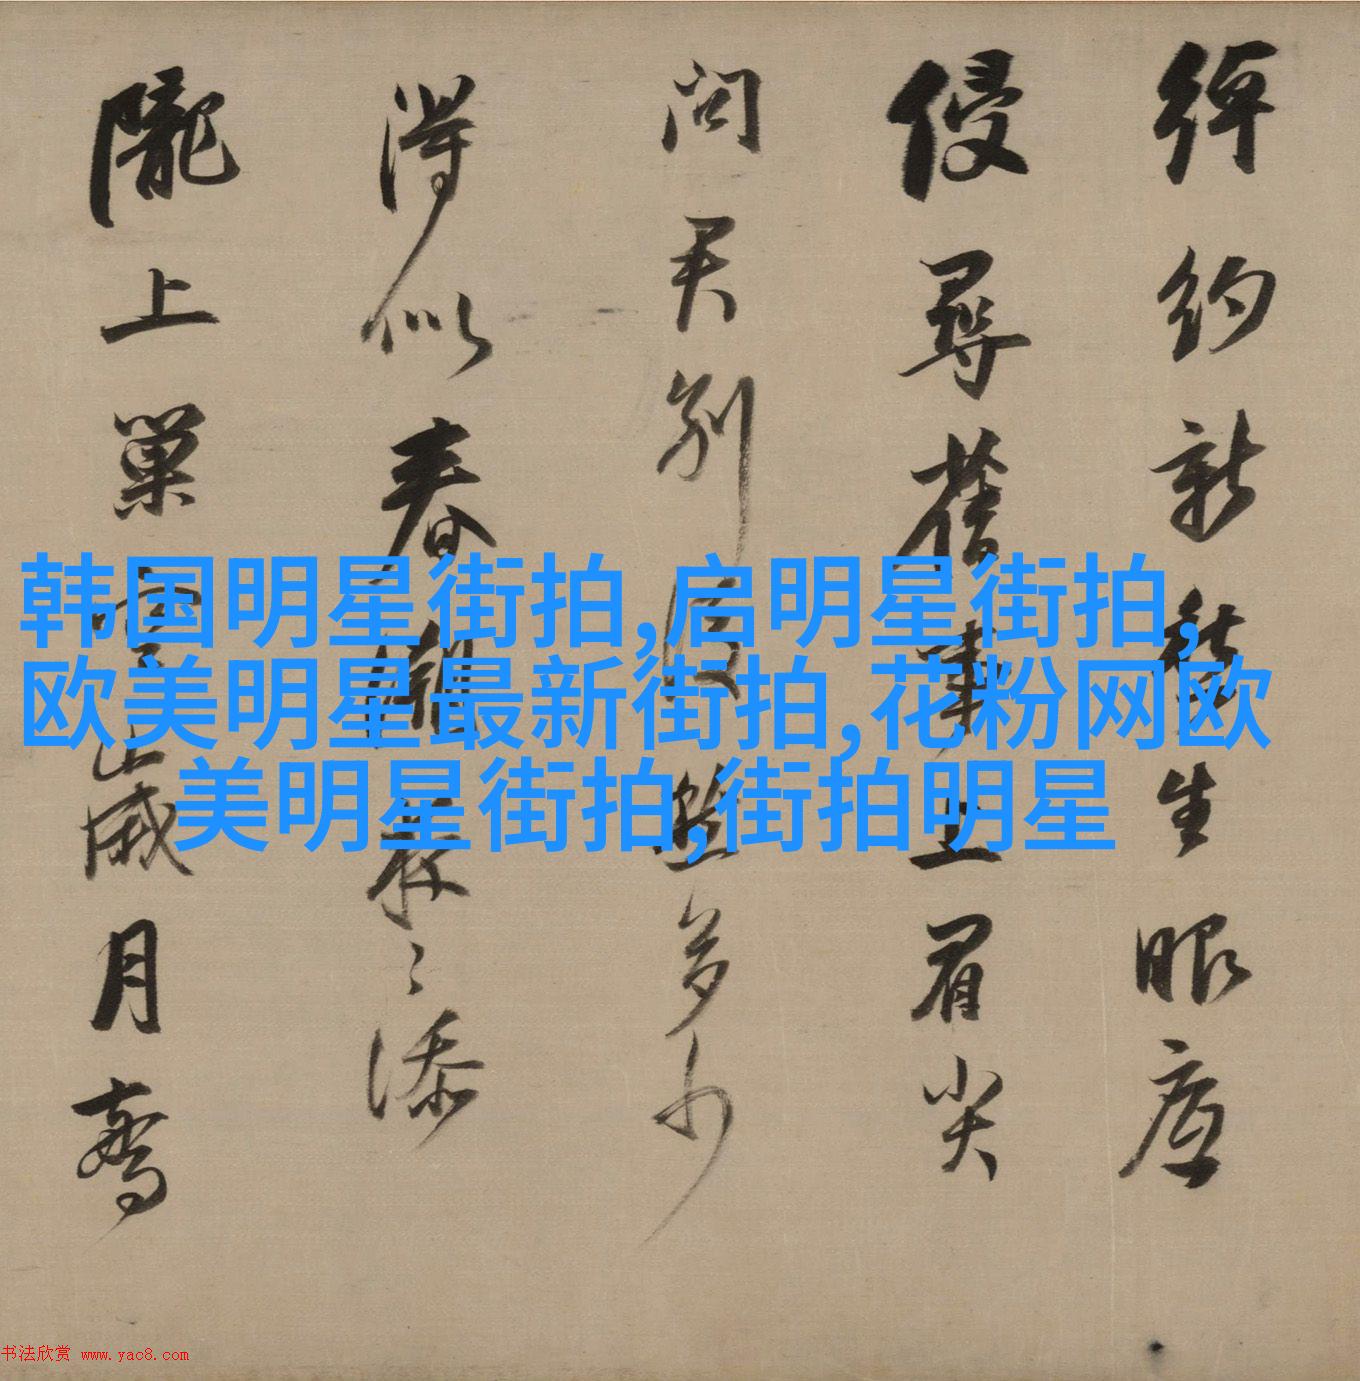 綽約新粧生眼底
侵尋舊事上眉尖
問君別後愁多少
得似春潮夜々添
隴上巢空歲月驚
韩国明星街拍,启明星街拍,
欧美明星最新街拍,花粉网欧
美明星街拍,街拍明星
书法欣赏 www.yac8.com